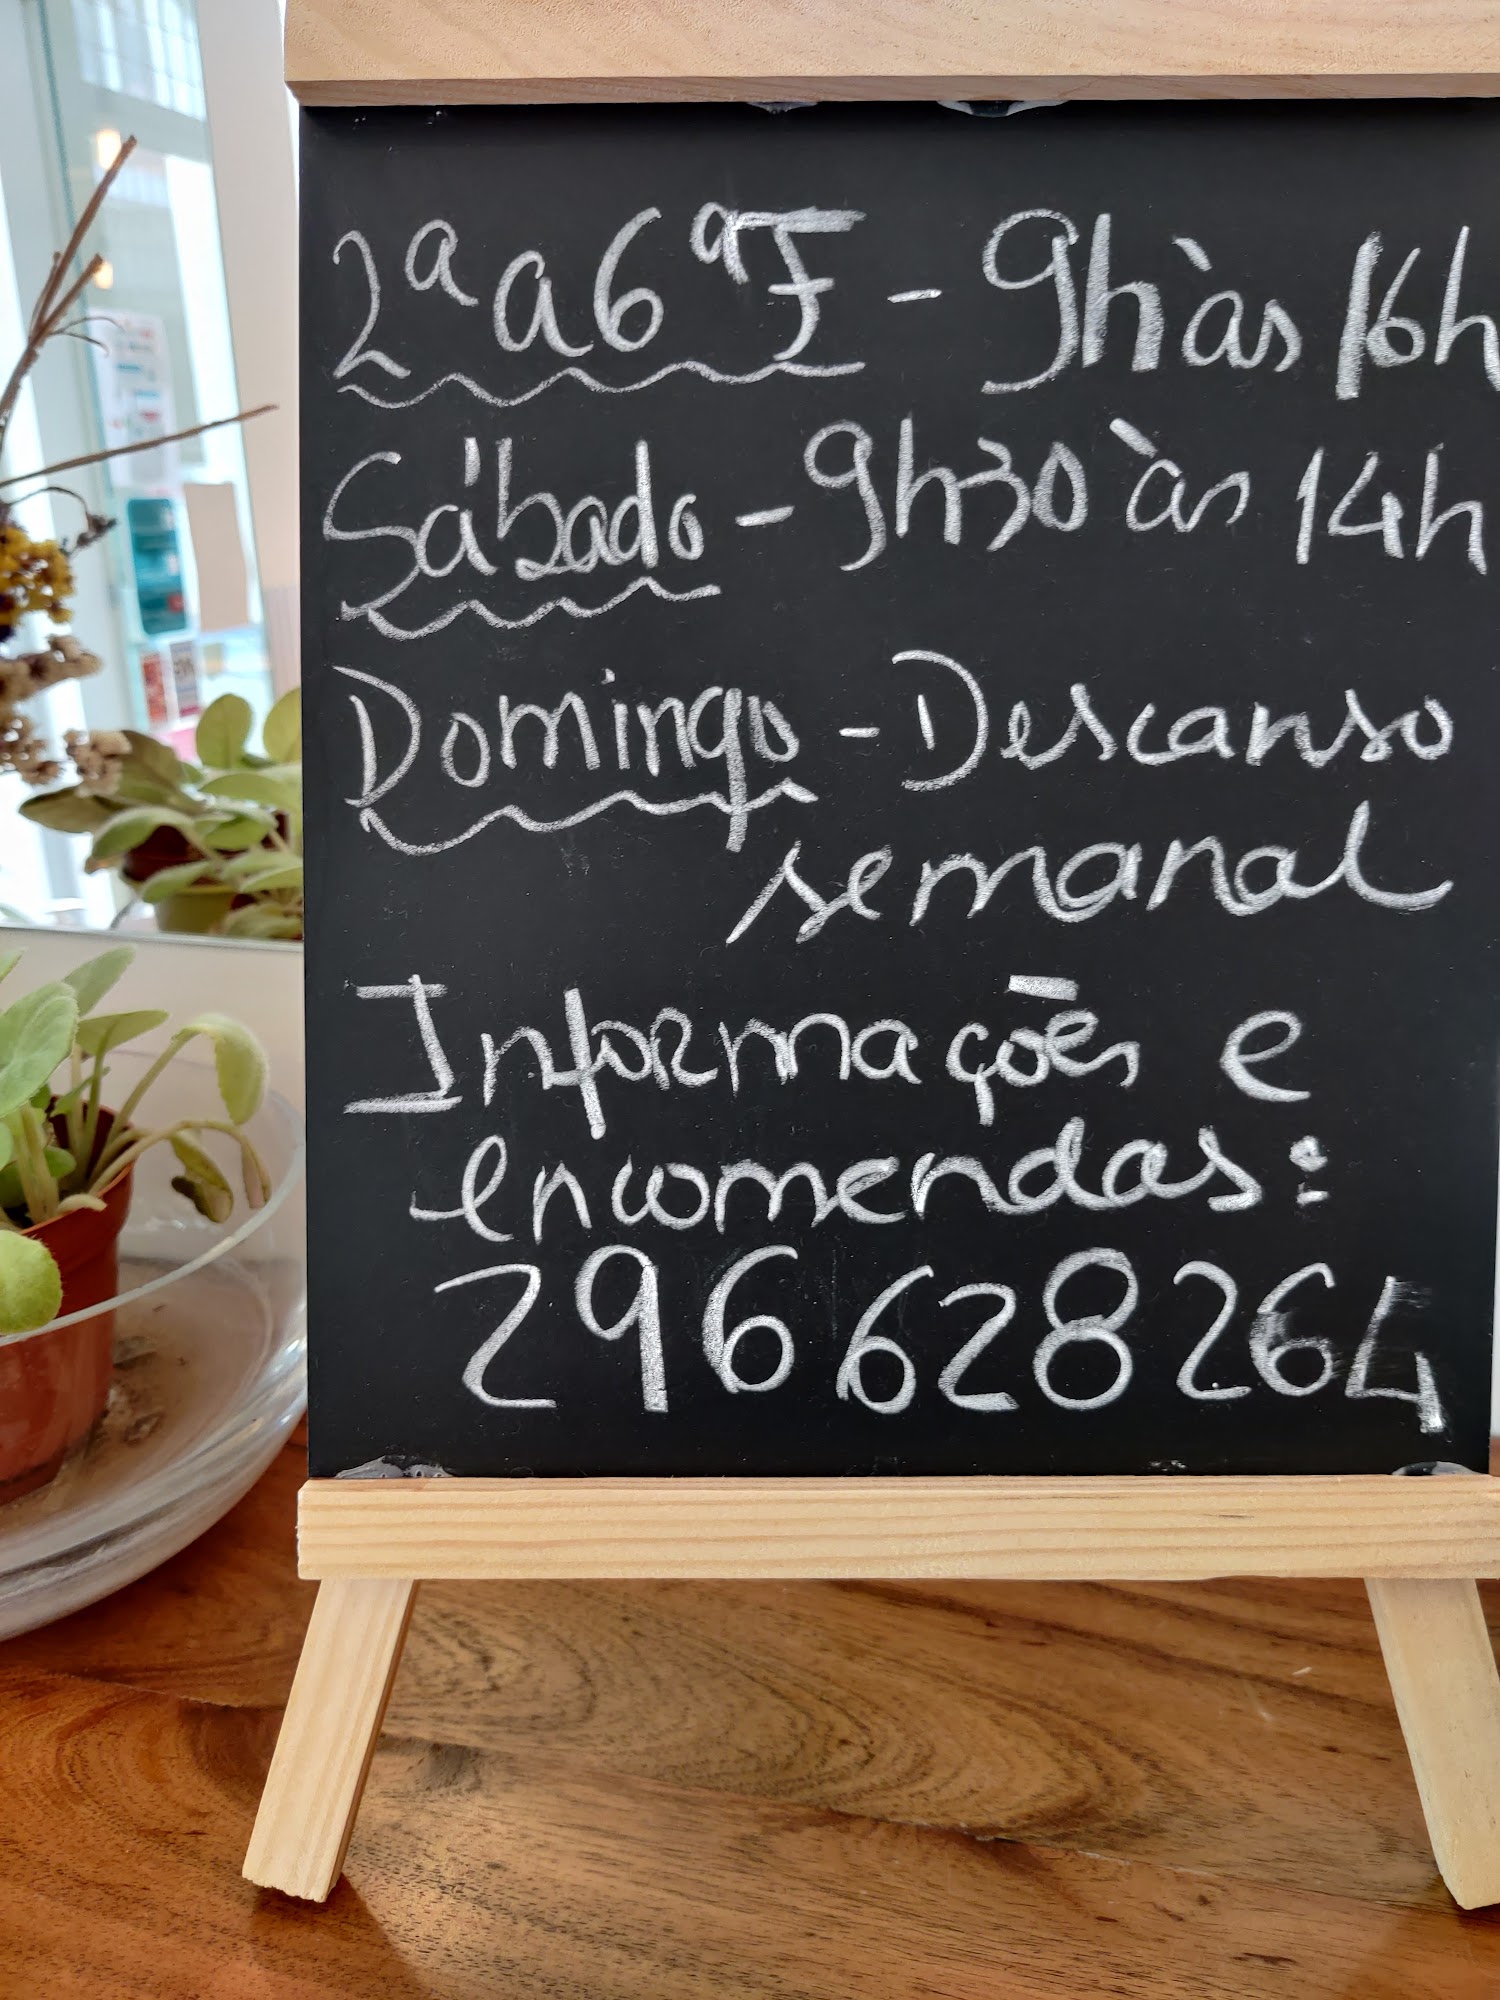 2ª a 6ª F - 9h às 16h
Sábado - 9h30 às 14h
Domingo - Descanso
semanal
Informações e
encomendas:
296 628 264